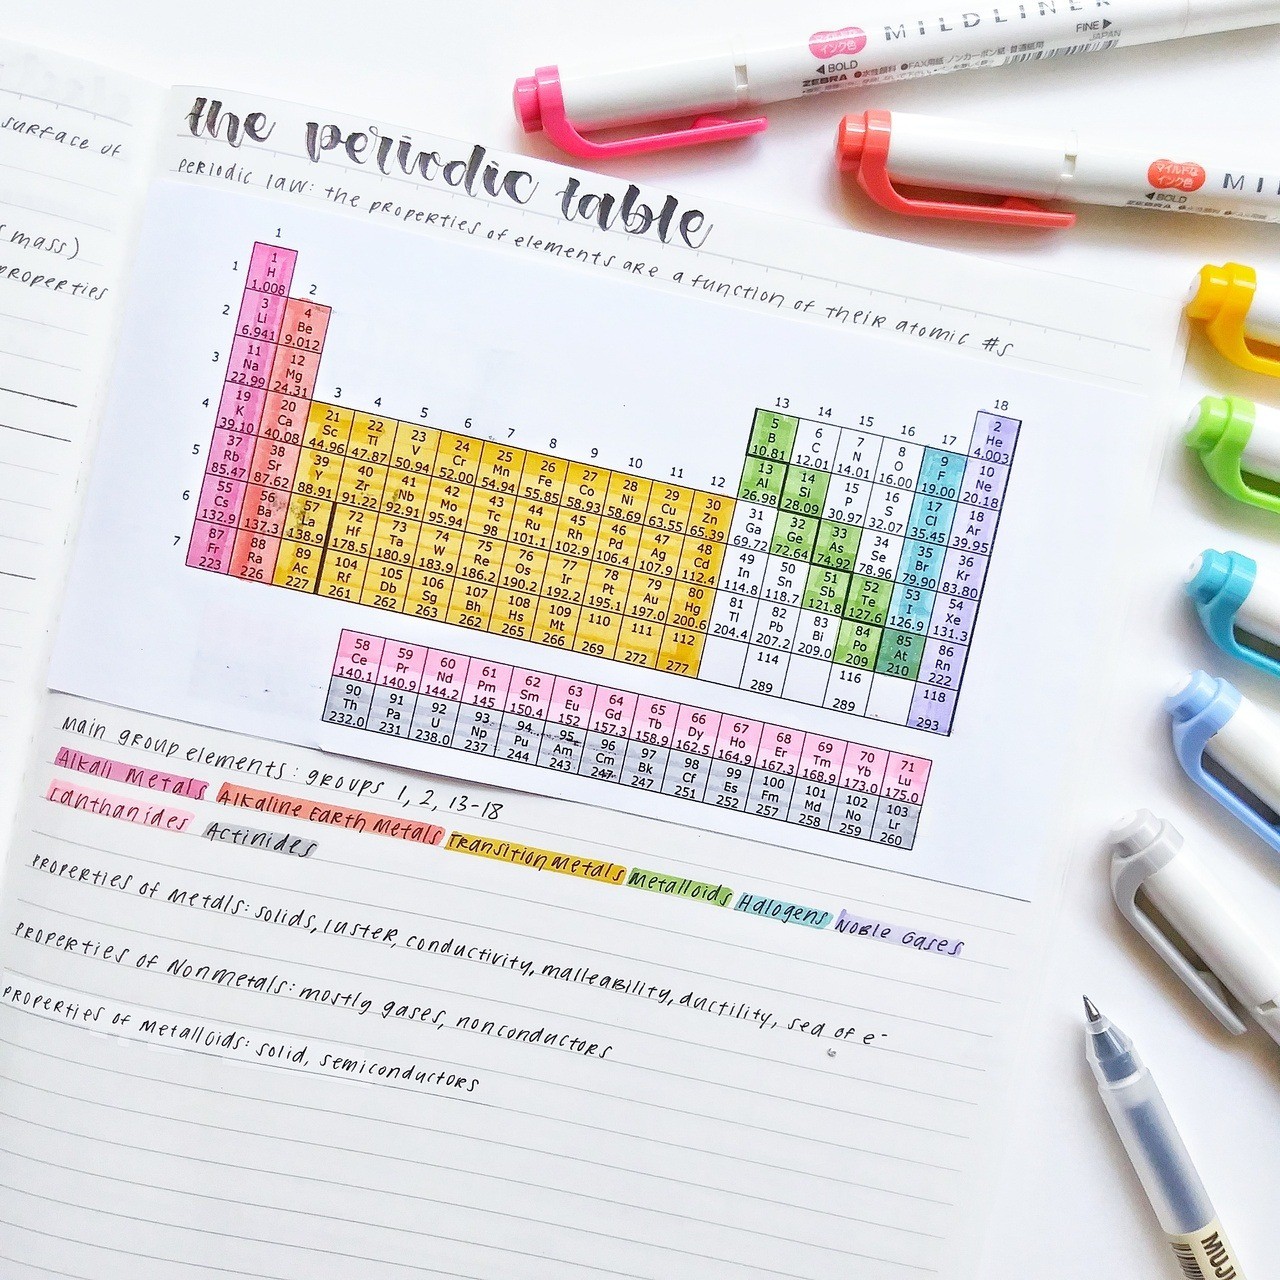 surface of
mass)
properties
the periodic table
periodic law: the properties of elements are a function of their atomic #s
1 18
2 13 14 15 16 17
3 4 5 6 7 8 9 10 11 12
1 2 3 4 5 6 7
1 H 1.008 2 He 4.003
3 Li 6.941 4 Be 9.012 5 B 10.81 6 C 12.01 7 N 14.01 8 O 16.00 9 F 19.00 10 Ne 20.18
11 Na 22.99 12 Mg 24.31 13 Al 26.98 14 Si 28.09 15 P 30.97 16 S 32.07 17 Cl 35.45 18 Ar 39.95
19 K 39.10 20 Ca 40.08 21 Sc 44.96 22 Ti 47.87 23 V 50.94 24 Cr 52.00 25 Mn 54.94 26 Fe 55.85 27 Co 58.93 28 Ni 58.69 29 Cu 63.55 30 Zn 65.39 31 Ga 69.72 32 Ge 72.64 33 As 74.92 34 Se 78.96 35 Br 79.90 36 Kr 83.80
37 Rb 85.47 38 Sr 87.62 39 Y 88.91 40 Zr 91.22 41 Nb 92.91 42 Mo 95.94 43 Tc 98 44 Ru 101.1 45 Rh 102.9 46 Pd 106.4 47 Ag 107.9 48 Cd 112.4 49 In 114.8 50 Sn 118.7 51 Sb 121.8 52 Te 127.6 53 I 126.9 54 Xe 131.3
55 Cs 132.9 56 Ba 137.3 57 La 138.9 72 Hf 178.5 73 Ta 180.9 74 W 183.9 75 Re 186.2 76 Os 190.2 77 Ir 192.2 78 Pt 195.1 79 Au 197.0 80 Hg 200.6 81 Tl 204.4 82 Pb 207.2 83 Bi 209.0 84 Po 209 85 At 210 86 Rn 222
87 Fr 223 88 Ra 226 89 Ac 227 104 Rf 261 105 Db 262 106 Sg 263 107 Bh 262 108 Hs 265 109 Mt 266 110 269 111 272 112 277 114 289 116 289 118 293
58 Ce 140.1 59 Pr 140.9 60 Nd 144.2 61 Pm 145 62 Sm 150.4 63 Eu 152 64 Gd 157.3 65 Tb 158.9 66 Dy 162.5 67 Ho 164.9 68 Er 167.3 69 Tm 168.9 70 Yb 173.0 71 Lu 175.0
90 Th 232.0 91 Pa 231 92 U 238.0 93 Np 237 94 Pu 244 95 Am 243 96 Cm 247 97 Bk 247 98 Cf 251 99 Es 252 100 Fm 257 101 Md 258 102 No 259 103 Lr 260
main group elements: groups 1, 2, 13-18
Alkali Metals Alkaline Earth Metals Transition Metals Metalloids Halogens Noble Gases
Lanthanides Actinides
properties of metals: solids, luster, conductivity, malleability, ductility, sea of e-
properties of nonmetals: mostly gases, nonconductors
properties of metalloids: solid, semiconductors
マイルドな
インク色
MILDLINER
FINE ▶
JAPAN
◀ BOLD
ZEBRA ●水性顔料 ●FAX用紙 ノンカーボン紙 普通紙用
マイルドな
インク色
MI
◀ BOLD
ZEBRA
MUJI